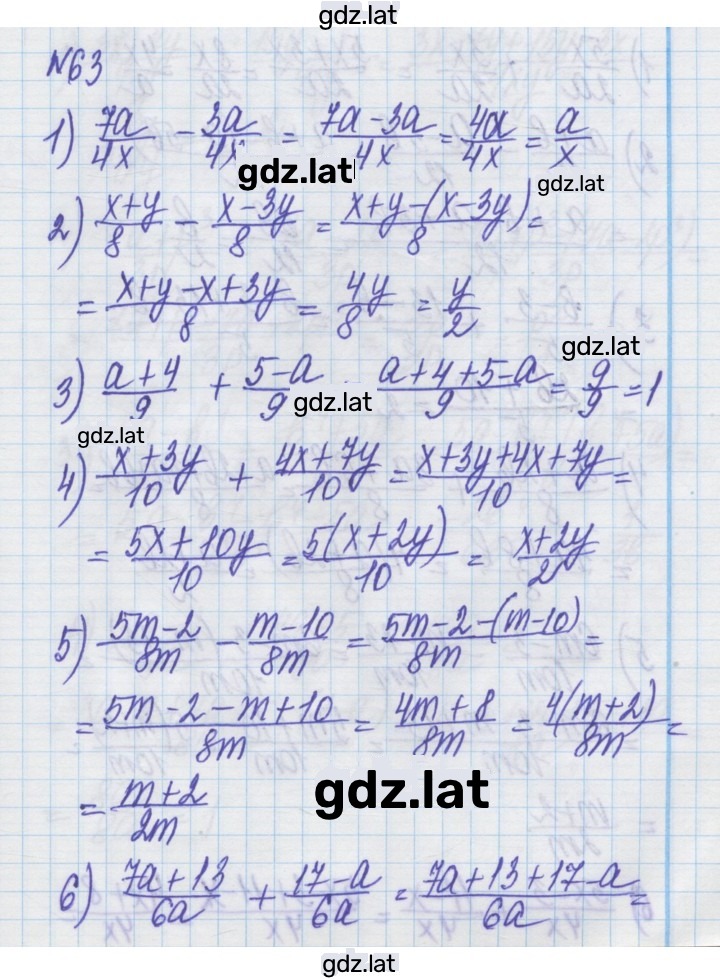 gdz.lat
№63
1) 7a/4x - 3a/4x = 7a-3a/4x = 4a/4x = a/x
gdz.lat
gdz.lat
2) x+y/8 - x-3y/8 = x+y-(x-3y)/8 =
= x+y-x+3y/8 = 4y/8 = y/2
gdz.lat
3) a+4/9 + 5-a/9 a+4+5-a/9 = 9/9 = 1
gdz.lat
gdz.lat
4) x+3y/10 + 4x+7y/10 = x+3y+4x+7y/10 =
= 5x+10y/10 = 5(x+2y)/10 = x+2y/2
5) 5m-2/8m - m-10/8m = 5m-2-(m-10)/8m =
= 5m-2-m+10/8m = 4m+8/8m = 4(m+2)/8m =
gdz.lat
= m+2/2m
6) 7a+13/6a + 17-a/6a = 7a+13+17-a/6a =
gdz.lat